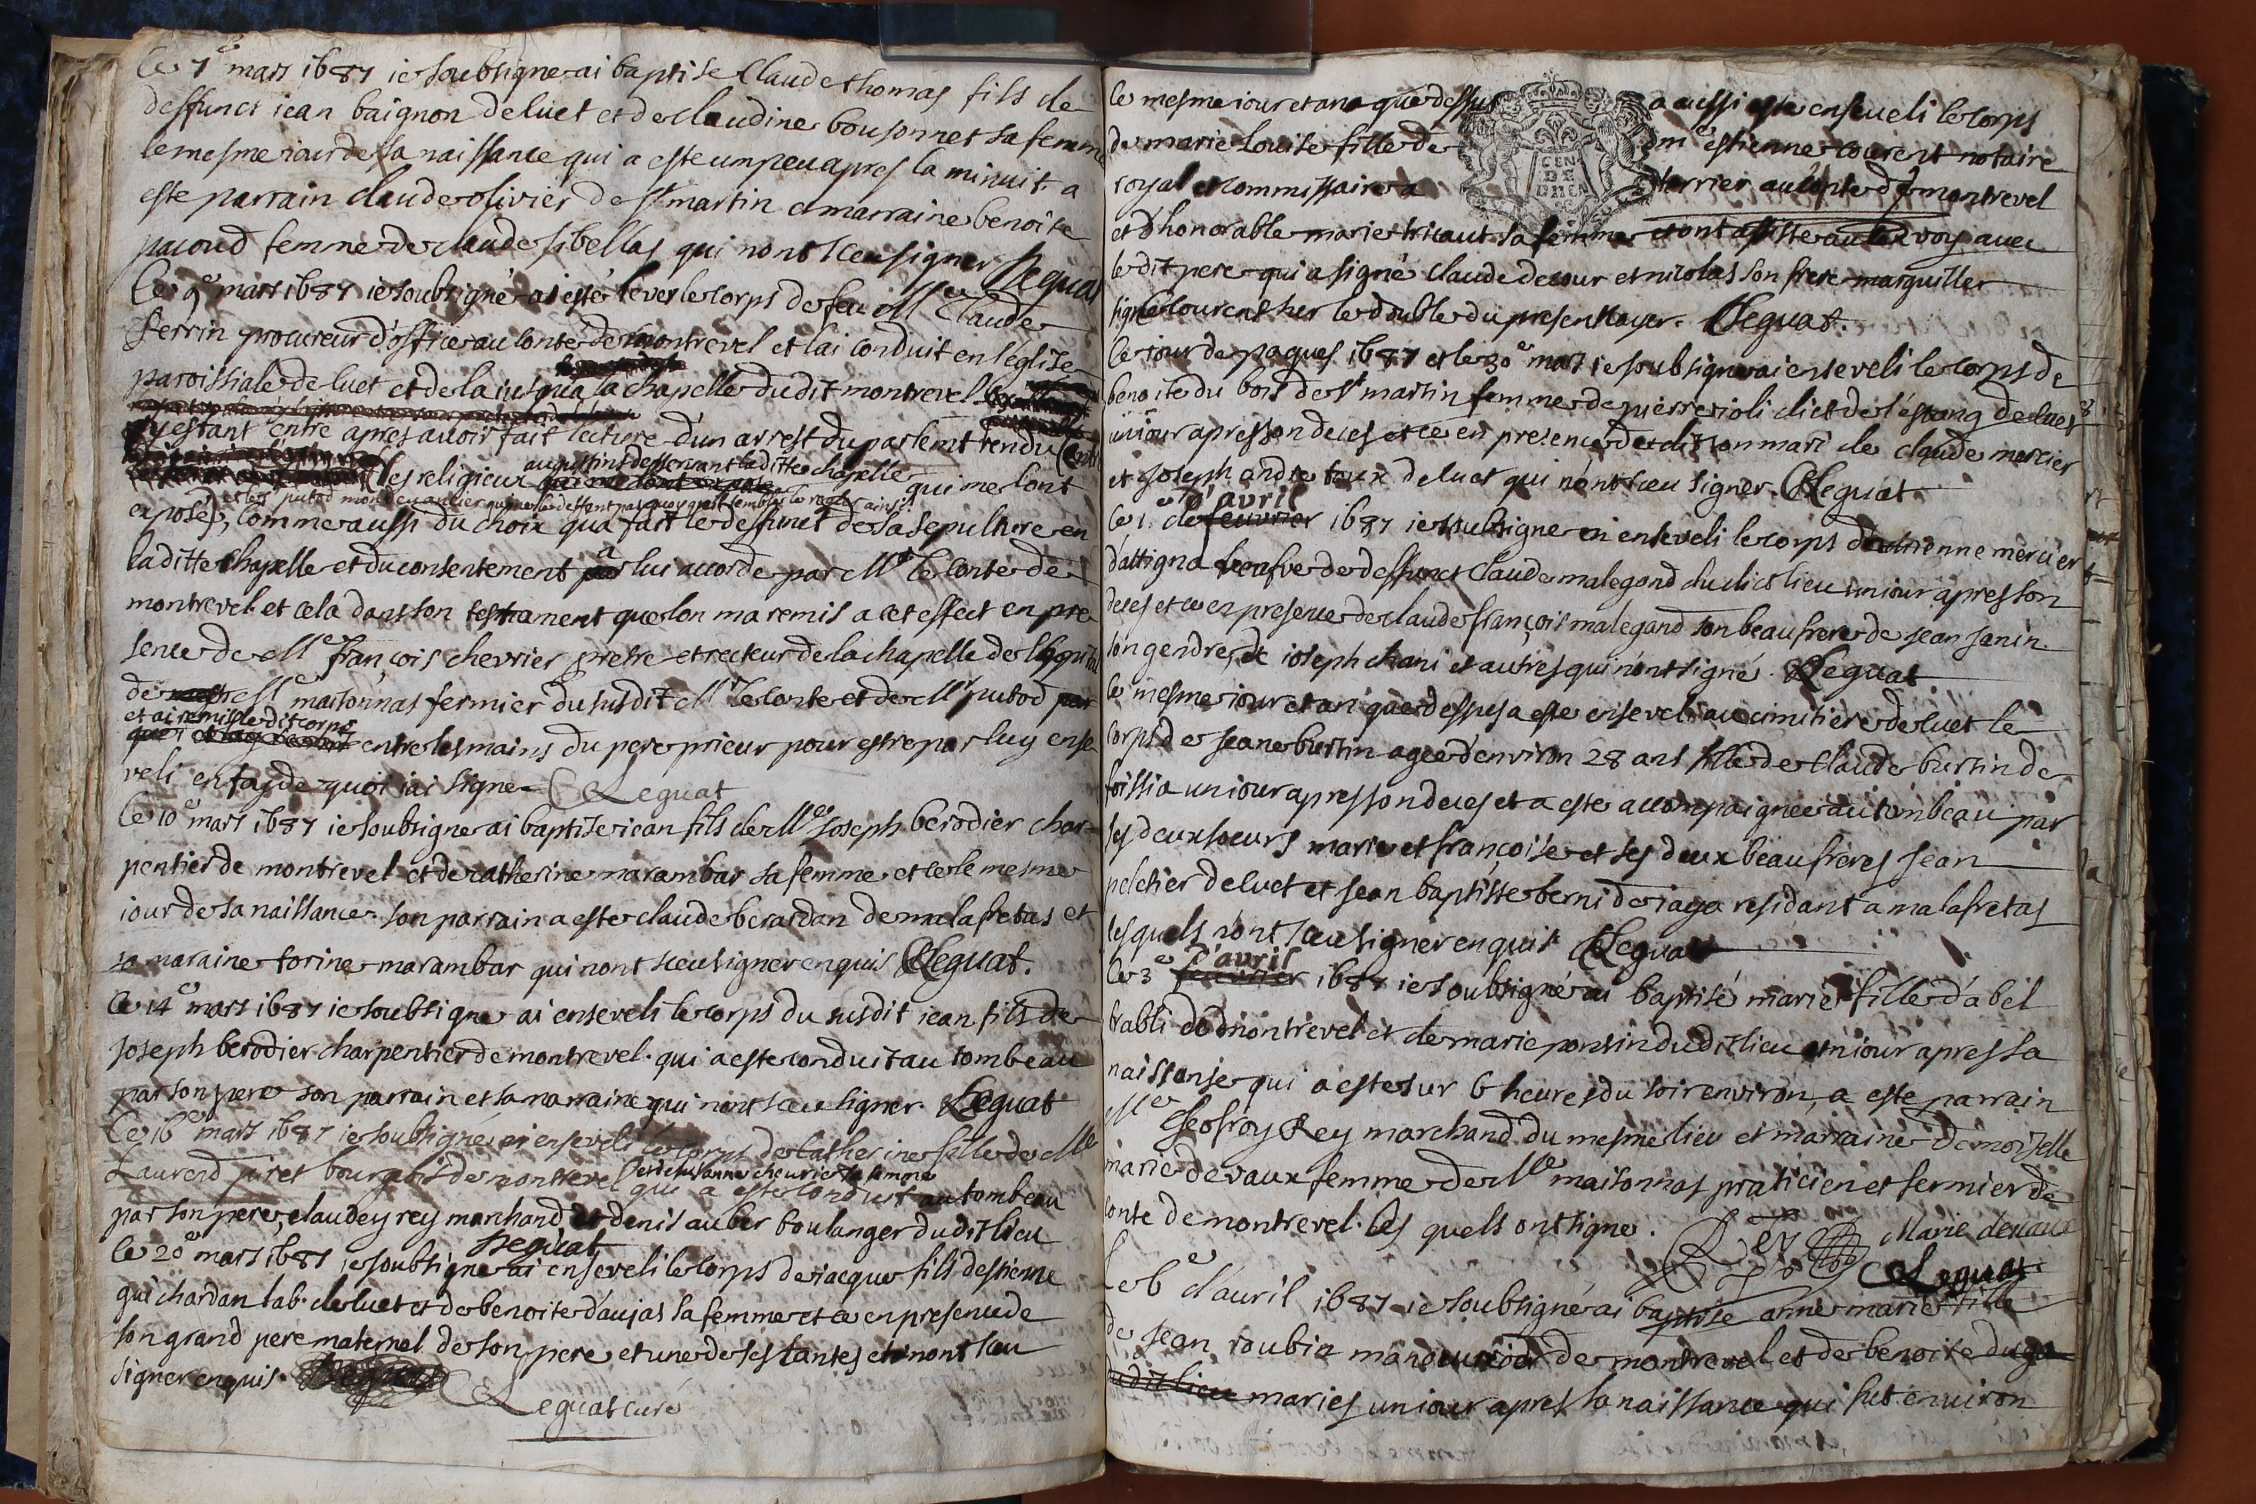 Le 7e mars 1687 ie soubsigne ai baptise Claude thomas fils de
deffunct iean baignon de luet et de claudine bousonnet sa femme
le mesme iour de sa naissance qui a este un peu apres la minuit. a
este parrain claude olivier de st martin et marraine benoite
pacoud femme de claude sibellas qui nont sceu signer Leguat
Le 9e mars 1687 ie soubsigné ai esté lever le corps de feu Mr Claude
perrin procureur d'office au conté de montrevel et lai conduit en léglise
paroissiale de luet et de la iusqua la chapelle du dit montrevel
y estant entre apres avoir fait lecture d'un arrest du parlemt rendu
augustins desservant la ditte chapelle
les religieux qui me lont
exposé, comme aussi du choix qua fait le deffunct de sa sepulture en
la ditte chapelle et du consentement a lui accorde par Mr le conte de
montrevel et cela dans son testament que lon ma remis a cet effect en pre
sence de Mre françois chevrier pretre et recteur de la chapelle de
de Mr maisonnas fermier du susdit Mr le conte et de Mr putod
et ai remis le dit corps
entre les mains du pere prieur pour estre par luy ense
veli en foy de quoi iai signe Leguat
Le 10e mars 1687 ie soubsigne ai baptise iean fils de Mre Joseph berodier char
pentier de montrevel et de catherine marambar sa femme et ce le mesme
iour de sa naissance. son parrain a este claude berardan de malafretas et
sa maraine torine marambar qui nont sceu signer enquis Leguat.
Le 14e mars 1687 ie soubsigne ai enseveli le corps du susdit iean fils de
Joseph berodier charpentier de montrevel. qui a este conduit au tombeau
par son pere son parrain et sa marraine qui nont sceu signer. Leguat
Le 16e mars 1687 ie soubsigné ai enseveli le corps de catherine fille de Mre
et de susanne chevrier sa femme
Laurend piret bourgois de montrevel qui a este conduit au tombeau
par son pere, claude rey marchand et denis auber boulanger du dit lieu
Leguat
le 20e mars 1687 ie soubsigne ai enseveli le corps de iacque fils destienne
guichardan lab. de luet et de benoite daujas sa femme et ce en presence de
son grand pere maternel de son pere et une de ses tantes et nont sceu
signer enquis.
Leguat curé
le mesme iour et an que dessus a aussi este enseveli le corps
de marie Louise fille de Mre estienne courent notaire
royal et commissaire a terrier au conte de montrevel
et d'honorable marie tricaut sa femme et ont assiste avec
le dit pere qui a signé claude decour et nicolas son frere marguiller
signe courent sur le double du present Leguat.
Le iour de paques 1687 et le 30e mars ie soubsigne ai enseveli le corps de
benoite du bois de st martin femme de pierre ioli dict de l'estang de luet
un iour apres son deces et ce en presence dudit son mari de claude mercier
et Joseph andre tous de luet qui n'ont sceu signer. Leguat
d'avril
Le 1. de fevvrier 1687 ie soubsigne ai enseveli le corps mercier
dattigna veufve de deffunct Claude malegond du dict lieu un iour apres son
deces et ce en presence de claude françois malegand son beaufrere de jean Janin
son gendre, de ioseph chani et autres qui n'ont signé. Leguat
le mesme iour et an que dessus a este enseveli au cimitiere de luet le
corps de Jeane burtin agee d'environ 28 ans fille de claude burtin de
foissia un iour apres son deces et a este accompaignee au tombeau par
ses deux soeurs marie et françoise et ses deux beaufreres Jean
peletier de luet et Jean baptiste berni de iaya residant a malafretas
lesquels n'ont sceu signer enquis Leguat
d'avril
Le 3e fevvrier 1687 ie soubsigné ai baptisé marie fille d'abel
de montrevel et de marie ponsin du dit lieu un iour apres sa
naissanse qui a este sur 6 heures du soir environ, a este parrain
Mre Geofroy Rey marchand du mesme lieu et marraine demoiselle
marie devaux femme de Mre maisonnas praticien et fermier de
conte de montrevel. les quels ont signe. Rey Marie devaux
Leguat
Le 6e d'avril 1687 ie soubsigné ai baptise anne marie fille
de Jean roubia manouvrier de montrevel et de benoite
du dit lieu maries un iour apres sa naissance qui fut environ